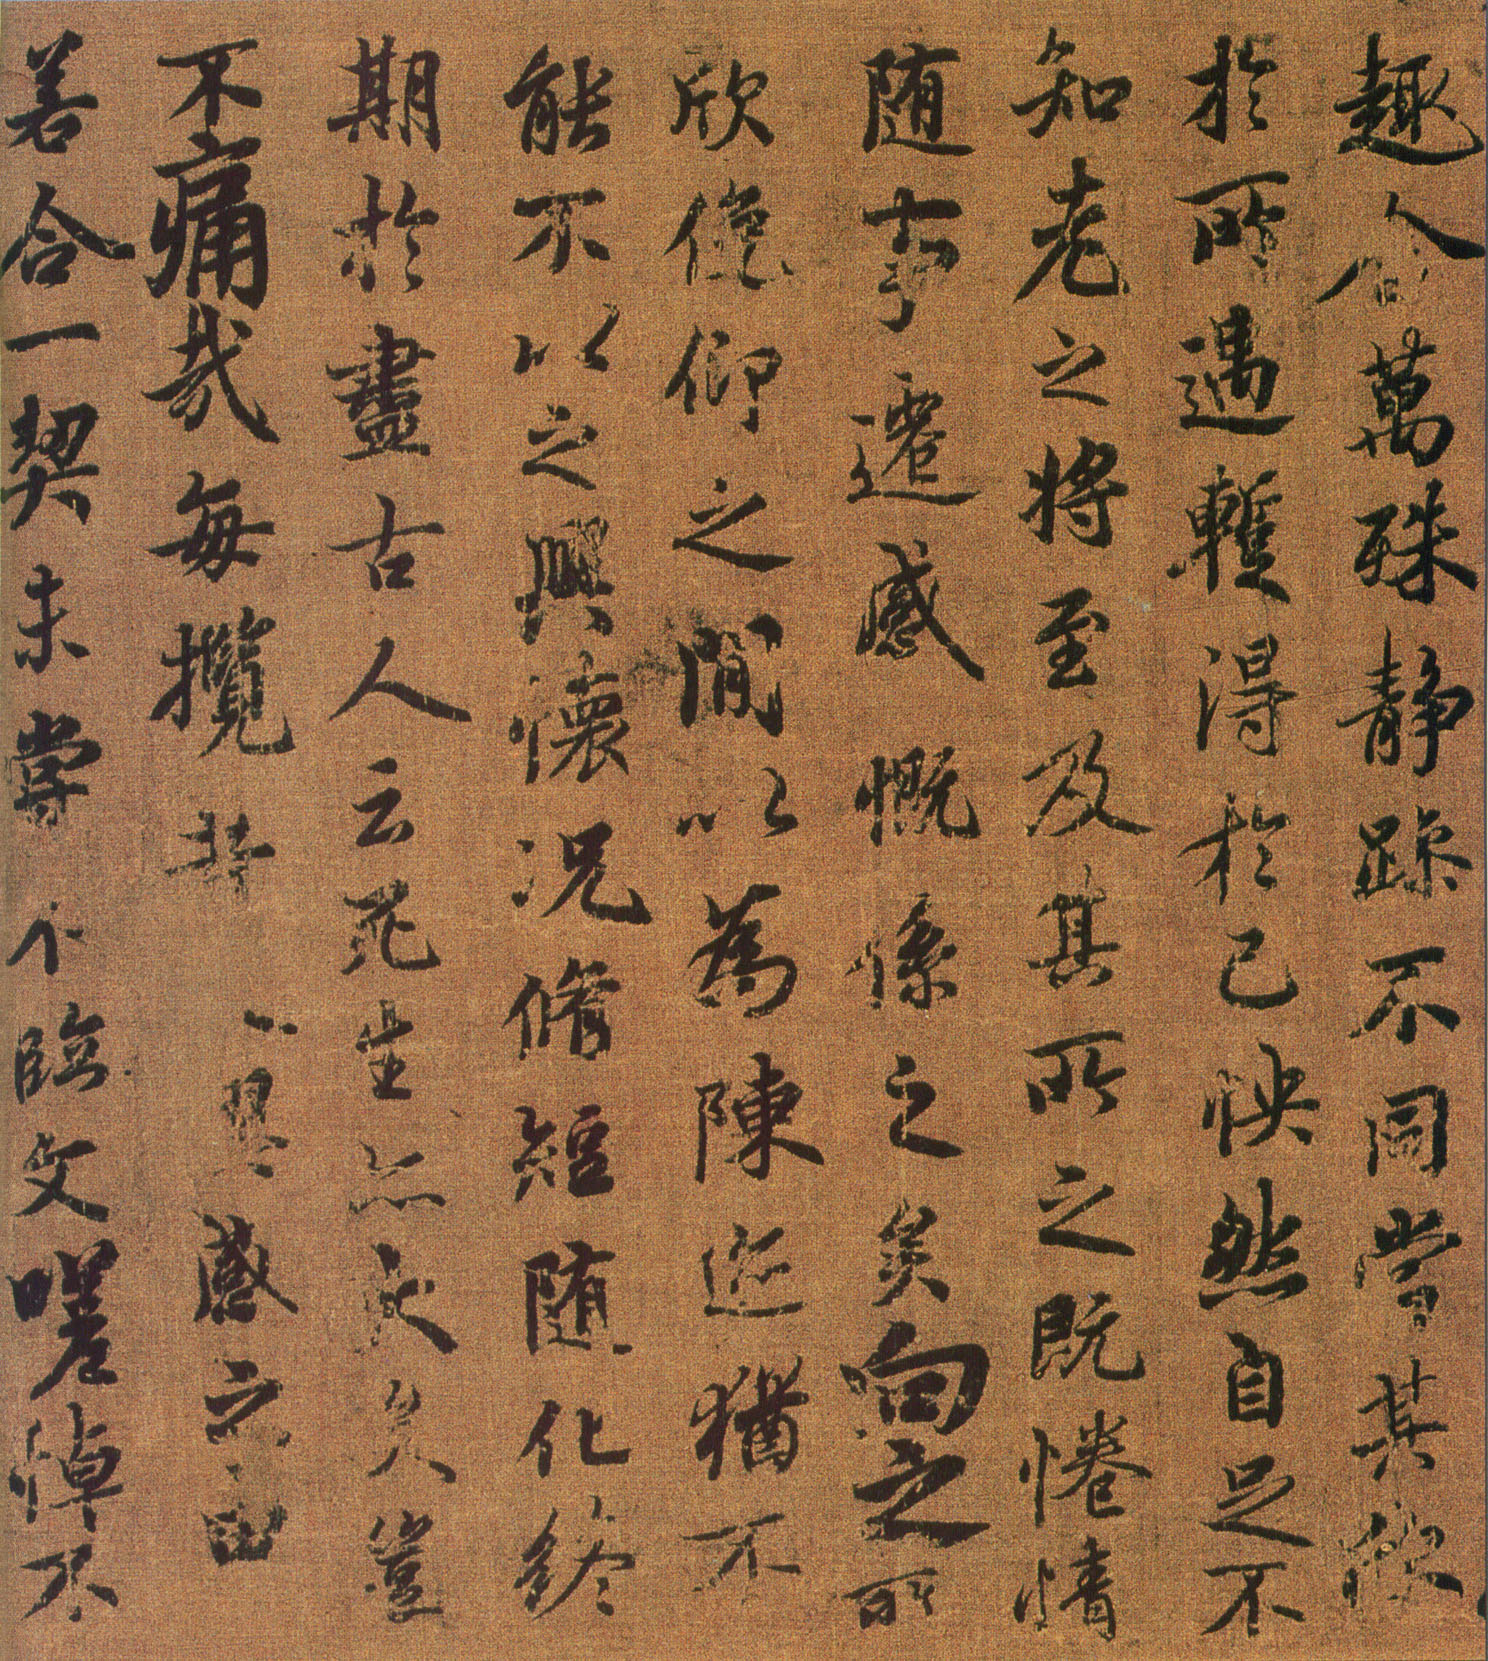 趣舎萬殊静躁不同當其欣
於所遇蹔得於己怏然自足不
知老之將至及其所之既惓情
随事遷感慨係之矣向之所
欣俛仰之閒以為陳迹猶不
能不以之興懷况脩短随化終
期於盡古人云死生亦大矣豈
不痛哉每攬昔一契感之由
若合一契未嘗不臨文嗟悼不